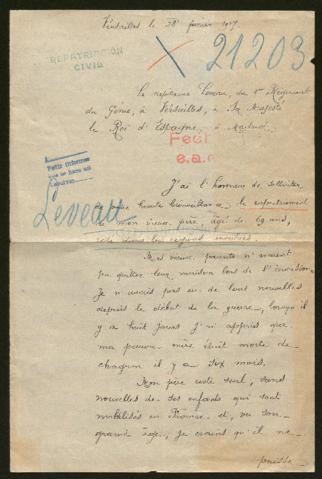 Versailles le 28 février 1917
REPATRIACION
CIVIL
21203
Le capitaine Leveau, du 1er Régiment
du Génie, à Versailles, à Sa Majesté
le Roi d'Espagne, à Madrid.
Pedir informes
Leveau
J'ai l'honneur de solliciter
de votre haute bienveillance, le rapatriement
de mon vieux père, âgé de 69 ans,
resté dans les régions envahies.
Mes vieux parents n'avaient
pu quitter leur maison lors de l'invasion.
Je n'avais pas eu de leurs nouvelles
depuis le début de la guerre, lorsqu'il
y a huit jours j'ai appris que
ma pauvre mère était morte de
chagrin il y a six mois.
Mon père resté seul, sans
nouvelles de ses enfants qui sont
mobilisés en France et, vu son
grand âge, je crains qu'il ne
puisse